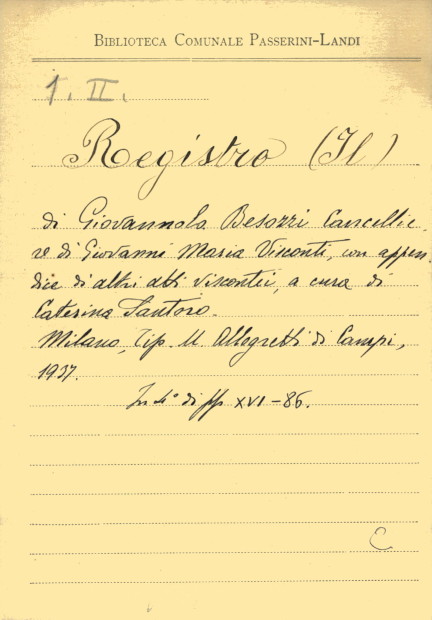 BIBLIOTECA COMUNALE PASSERINI-LANDI
1. II.
Registro (Il)
di Giovannolo Besozzi Cancellie-
re di Giovanni Maria Visconti, con appen-
dice di altri atti viscontei, a cura di
Caterina Santoro.
Milano, Tip. U. Allegretti di Campi,
1937.
In 4° di pp XVI-86.
C